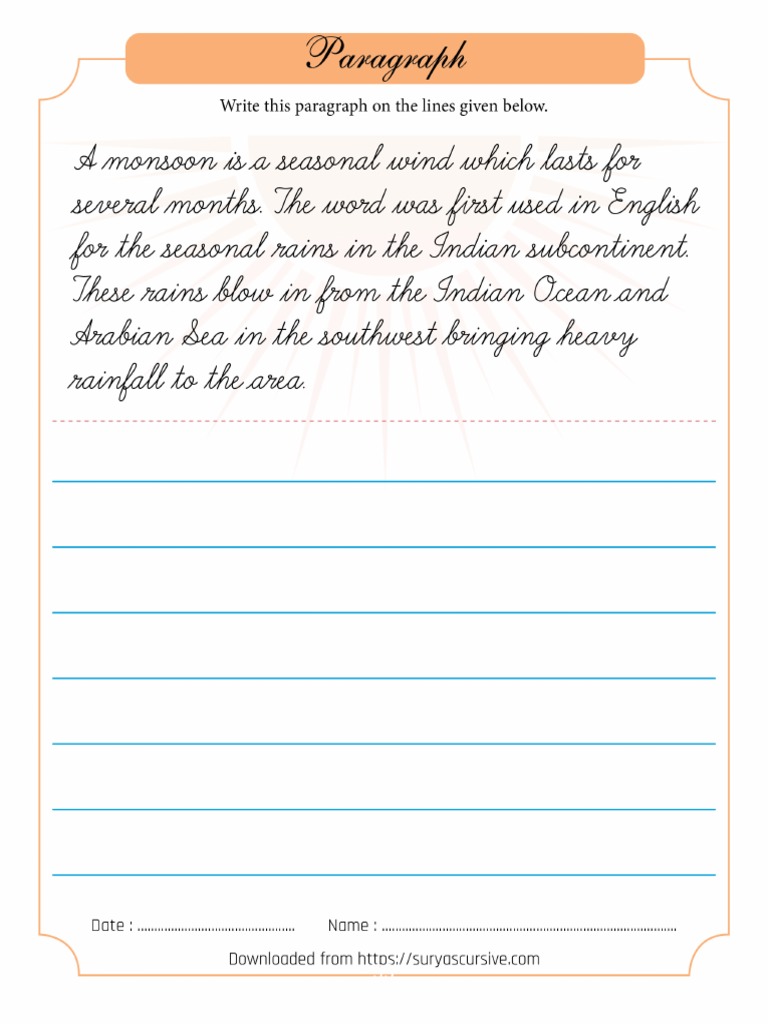 Paragraph
Write this paragraph on the lines given below.
A monsoon is a seasonal wind which lasts for
several months. The word was first used in English
for the seasonal rains in the Indian subcontinent.
These rains blow in from the Indian Ocean and
Arabian Sea in the southwest bringing heavy
rainfall to the area.
Date : ............................................... Name : ........................................................................................
Downloaded from https://suryascursive.com